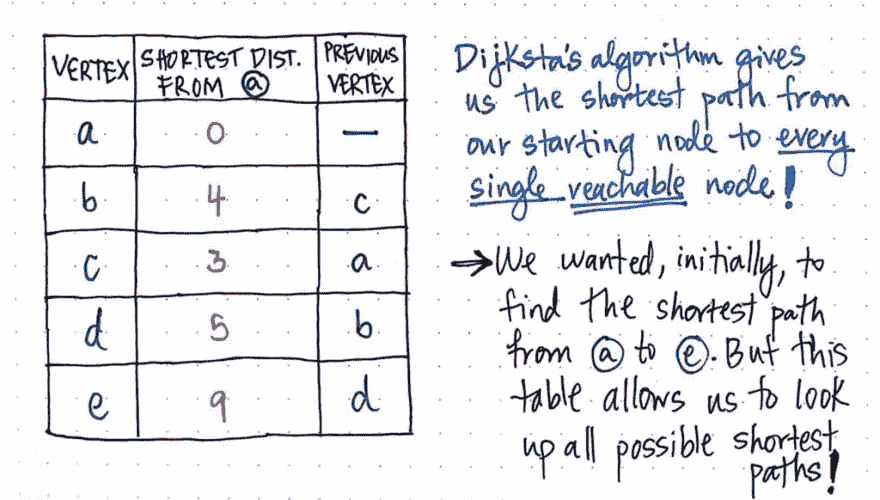 VERTEX | SHORTEST DIST. FROM ⓐ | PREVIOUS VERTEX
a | 0 | —
b | 4 | c
c | 3 | a
d | 5 | b
e | 9 | d
Dijksta's algorithm gives
us the shortest path from
our starting node to every
single reachable node!
→ We wanted, initially, to
find the shortest path
from ⓐ to ⓔ. But this
table allows us to look
up all possible shortest
paths!